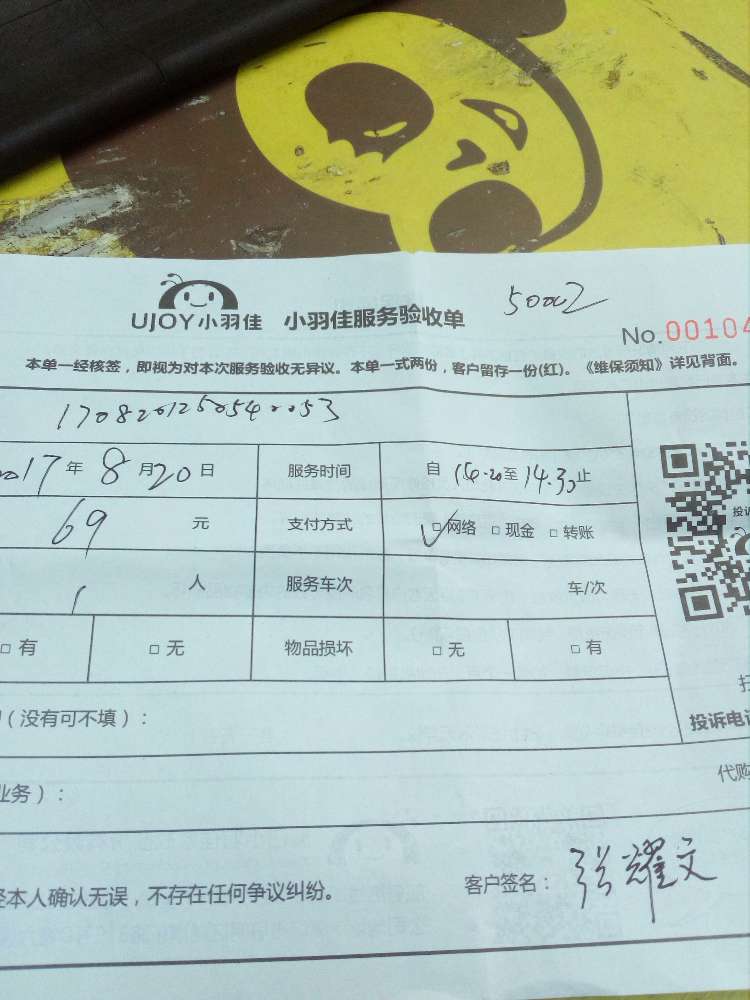 50002
UJOY小羽佳 小羽佳服务验收单
No.00104
本单一经核签，即视为对本次服务验收无异议。本单一式两份，客户留存一份(红)。《维保须知》详见背面。
170820125054
2017年8月20日 服务时间 自14.20至14.30止
69元 支付方式 ✓□网络 □现金 □转账
1人 服务车次 车/次
□有 □无 物品损坏 □无 □有
（没有可不填）：
投诉电话
业务）：
代购
本人确认无误，不存在任何争议纠纷。
客户签名：张耀文